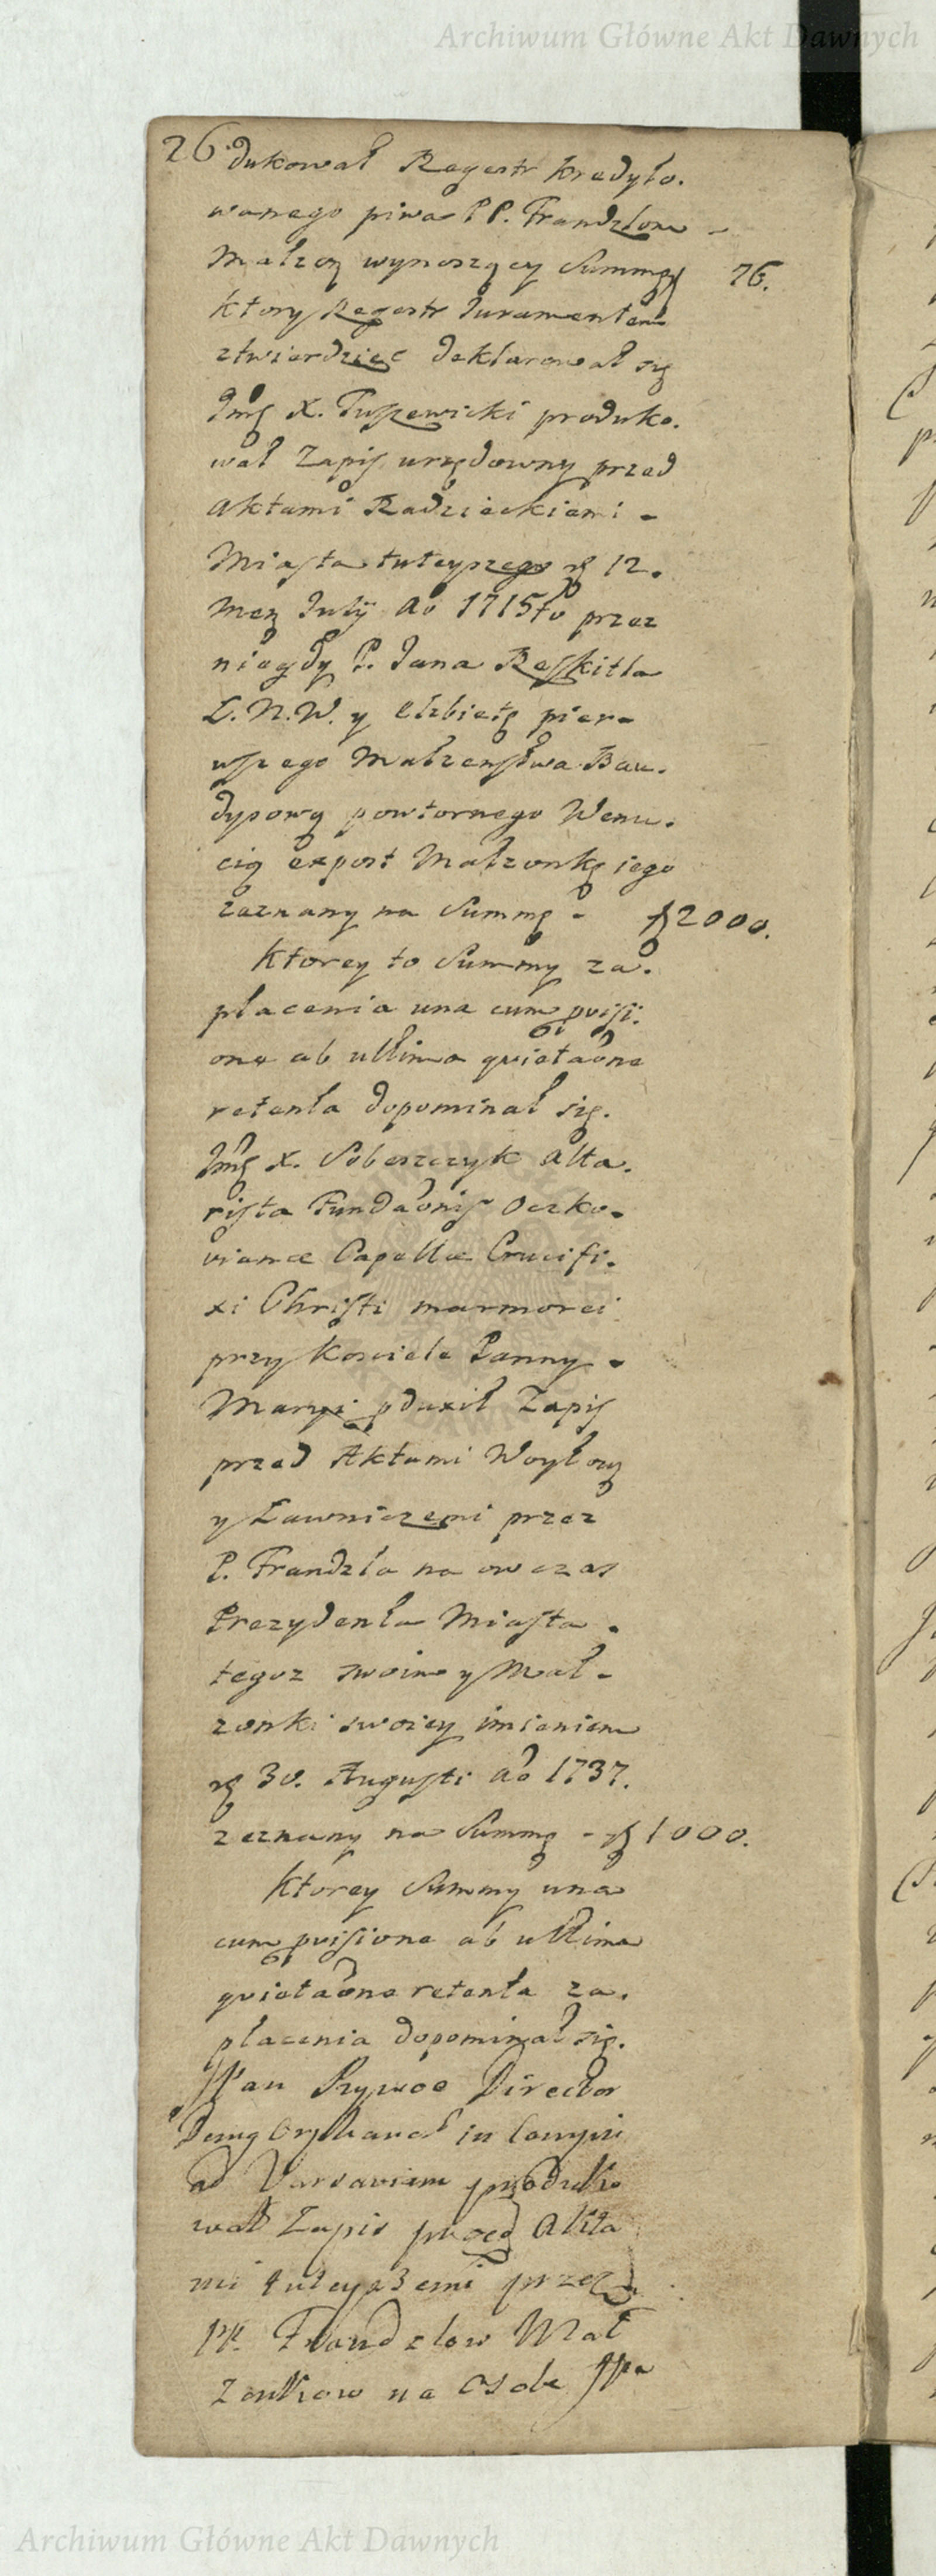 Archiwum Główne Akt Dawnych
26. dukował Regestr kredyto.
wanego piwa PP. Frandzlom -
Małzon wynoszący Summę 76.
ktory Regestr Juramentem
ztwierdzieć deklarował się
Jmć X. Tuszewicki produko.
wał Zapis urzędowny przed
Aktami Radzieckiemi -
Miasta tuteyszego 12.
Men July Ao 1715to przez
niegdy P. Jana Reskitla
L. N. W. y Elzbietę pier-
wszego Małzenstwa Bau.
dysową powtornego Wenu.
cią expost Małzonkę iego
zeznany na Summę - f 2000.
Ktorey to Summy za.
płacenia una cum pvisi.
one ab ultima quietaone
retenta dopominał się.
Jmć X. Soberszczyk Alta.
rista Fundaonis Oczko-
vianae Capellae Crucifi.
xi Christi marmorei
przy Kosciele Panny -
Maryi pduxit Zapis
przed Aktami Woytow
y Ławniczemi przez
P. Frandzla na ow czas
Prezydenta Miasta -
tegoz swoim y Mał-
zonki swoiey imieniem
30. Augusti ao 1737.
zeznany na Summę - f 1000.
Ktorey Summy una
cum pvisione ab ultima
quietaone retenta za.
płacenia dopominał się.
JPan Director
Domg Orphanot in
ad Varsaviam produko
wał Zapis przed Akta
mi tuteyszemi przez
PP. Frandzlow Mał
zonkow na Osobe JPa
Archiwum Główne Akt Dawnych